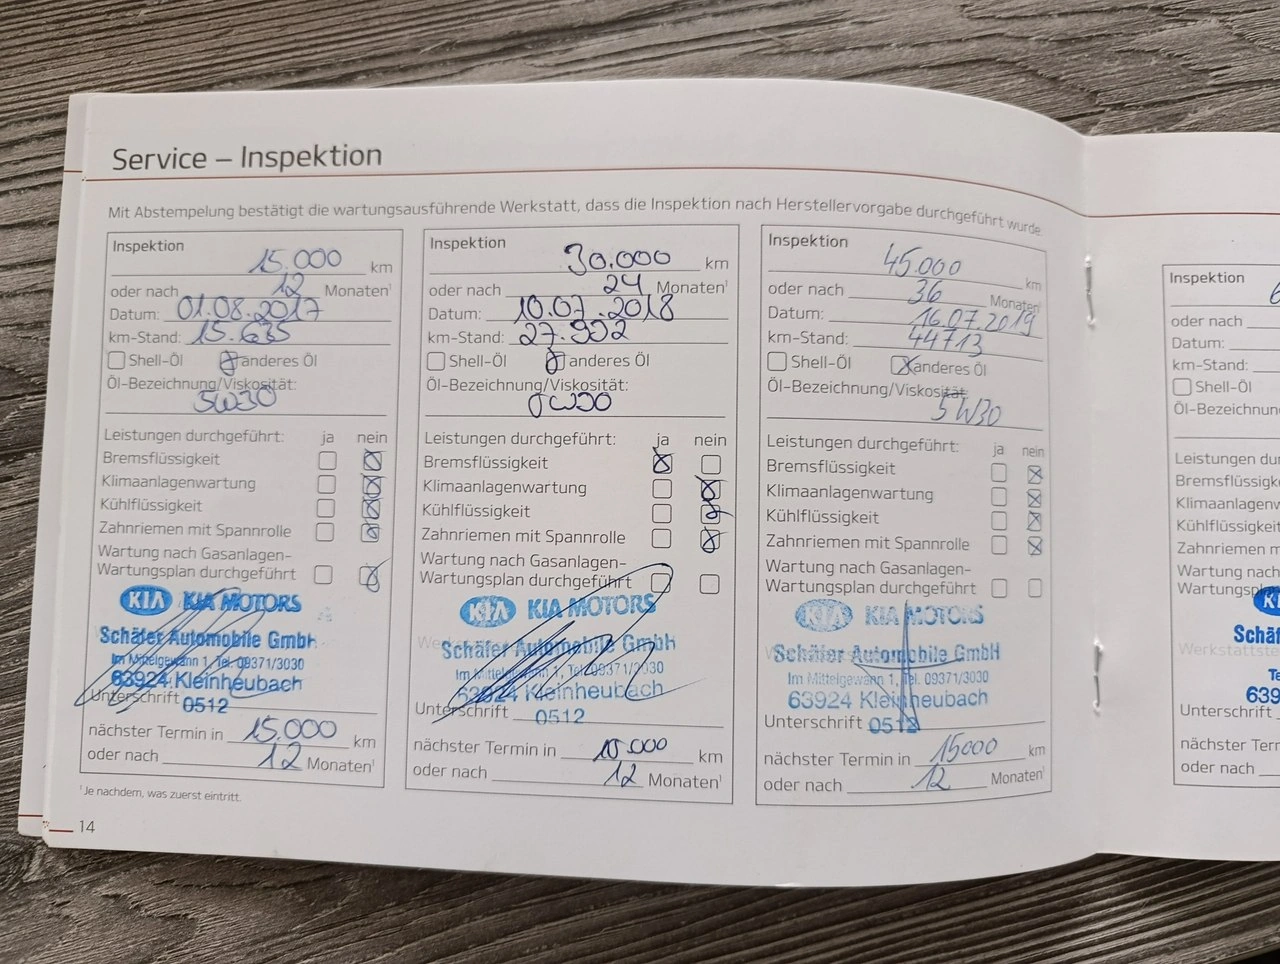 Service – Inspektion
Mit Abstempelung bestätigt die wartungsausführende Werkstatt, dass die Inspektion nach Herstellervorgabe durchgeführt wurde.
Inspektion
15.000 km
oder nach 12 Monaten¹
Datum: 01.08.2017
km-Stand: 15.635
Shell-Öl anderes Öl
Öl-Bezeichnung/Viskosität:
5W30
Leistungen durchgeführt: ja nein
Bremsflüssigkeit
Klimaanlagenwartung
Kühlflüssigkeit
Zahnriemen mit Spannrolle
Wartung nach Gasanlagen-
Wartungsplan durchgeführt
KIA KIA MOTORS
Schäfer Automobile GmbH
Im Mittelgewann 1, Tel. 09371/3030
63924 Kleinheubach
Unterschrift 0512
nächster Termin in 15.000 km
oder nach 12 Monaten¹
¹ Je nachdem, was zuerst eintritt.
14
Inspektion
30.000 km
oder nach 24 Monaten¹
Datum: 10.07.2018
km-Stand: 27.932
Shell-Öl anderes Öl
Öl-Bezeichnung/Viskosität:
W30
Leistungen durchgeführt: ja nein
Bremsflüssigkeit
Klimaanlagenwartung
Kühlflüssigkeit
Zahnriemen mit Spannrolle
Wartung nach Gasanlagen-
Wartungsplan durchgeführt
KIA KIA MOTORS
Schäfer Automobile GmbH
Im Mittelgewann 1, Tel. 09371/3030
63924 Kleinheubach
Unterschrift 0512
nächster Termin in 15.000 km
oder nach 12 Monaten¹
Inspektion
45.000 km
oder nach 36 Monaten¹
Datum: 16.07.2019
km-Stand: 44713
Shell-Öl anderes Öl
Öl-Bezeichnung/Viskosität:
5W30
Leistungen durchgeführt: ja nein
Bremsflüssigkeit
Klimaanlagenwartung
Kühlflüssigkeit
Zahnriemen mit Spannrolle
Wartung nach Gasanlagen-
Wartungsplan durchgeführt
KIA KIA MOTORS
Schäfer Automobile GmbH
Im Mittelgewann 1, Tel. 09371/3030
63924 Kleinheubach
Unterschrift 0512
nächster Termin in 15000 km
oder nach 12 Monaten¹
Inspektion
oder nach
Datum:
km-Stand:
Shell-Öl
Öl-Bezeichn
Leistungen du
Bremsflüssigk
Klimaanlagenw
Kühlflüssigkeit
Zahnriemen m
Wartung nach
Wartungspl
Schäf
Werkstattste
Te
639
Unterschrift
nächster Term
oder nach